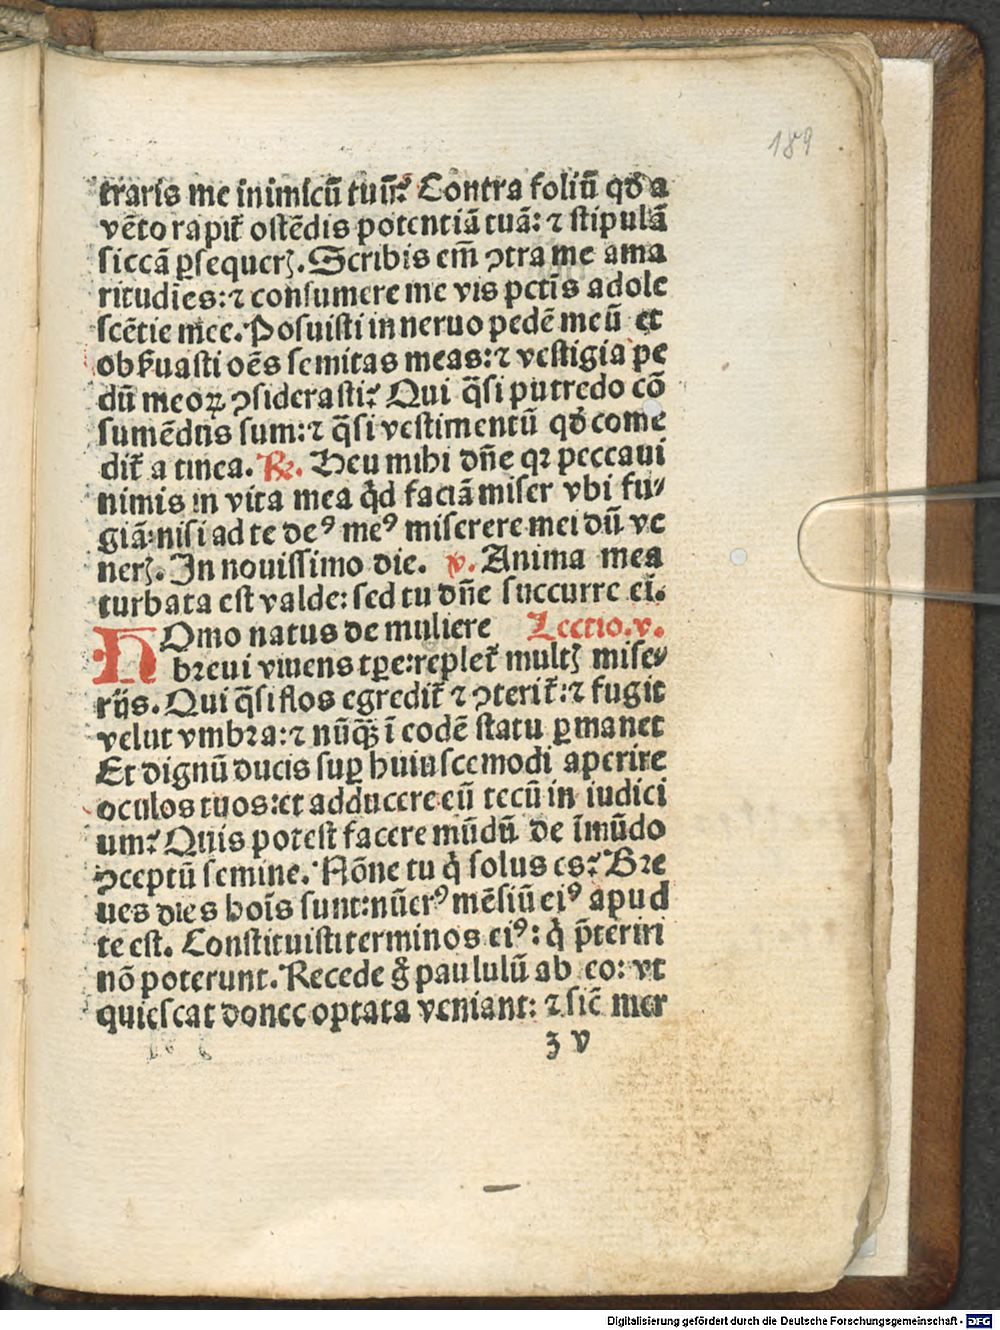 189
traris me inimicū tuū? Contra foliū qd̄ a
vēto rapit̄ ostēdis potentiā tuā: ⁊ stipulā
siccā ꝑsequerꝫ. Scribis em̄ ↄtra me ama
ritudīes: ⁊ consumere me vis pctīs adole
scētie mee. Posuisti in neruo pedē meū et
obẜuasti oēs semitas meas: ⁊ vestigia pe
dū meoꝝ ↄsiderasti? Qui q̄si putredo cō
sumēdus sum: ⁊ q̄si vestimentū qd̄ come
dit̄ a tinea. ℞. Heu mihi dn̄e qꝛ peccaui
nimis in vita mea qͥd faciā miser vbi fu⸗
giā: nisi ad te deꝰ meꝰ miserere mei dū ve
nerꝫ. In nouissimo die. ℣. Anima mea
turbata est valde: sed tu dn̄e succurre ei.
HOmo natus de muliere Lectio. v.
breui viuens tꝑe: replet̄ multꝫ mise⸗
rijs. Qui q̄si flos egredit̄ ⁊ ↄterit̄: ⁊ fugit
velut vmbꝛa: ⁊ nūqꝫ ī eodē statu ꝑmanet
Et dignū ducis suꝑ huiuscemodi aperire
oculos tuos: et adducere eū tecū in iudici
um? Quis potest facere mūdū de īmūdo
ↄceptū semine. Nōne tu qͥ solus es? Bꝛe
ues dies hoīs sunt: nūerꝰ mēsiū eiꝰ apud
te est. Constituisti terminos eiꝰ: qͥ p̄teriri
nō poterunt. Recede gͦ paululū ab eo: vt
quiescat donec optata veniant: ⁊ sic̄ mer
z v
Digitalisierung gefördert durch die Deutsche Forschungsgemeinschaft - DFG